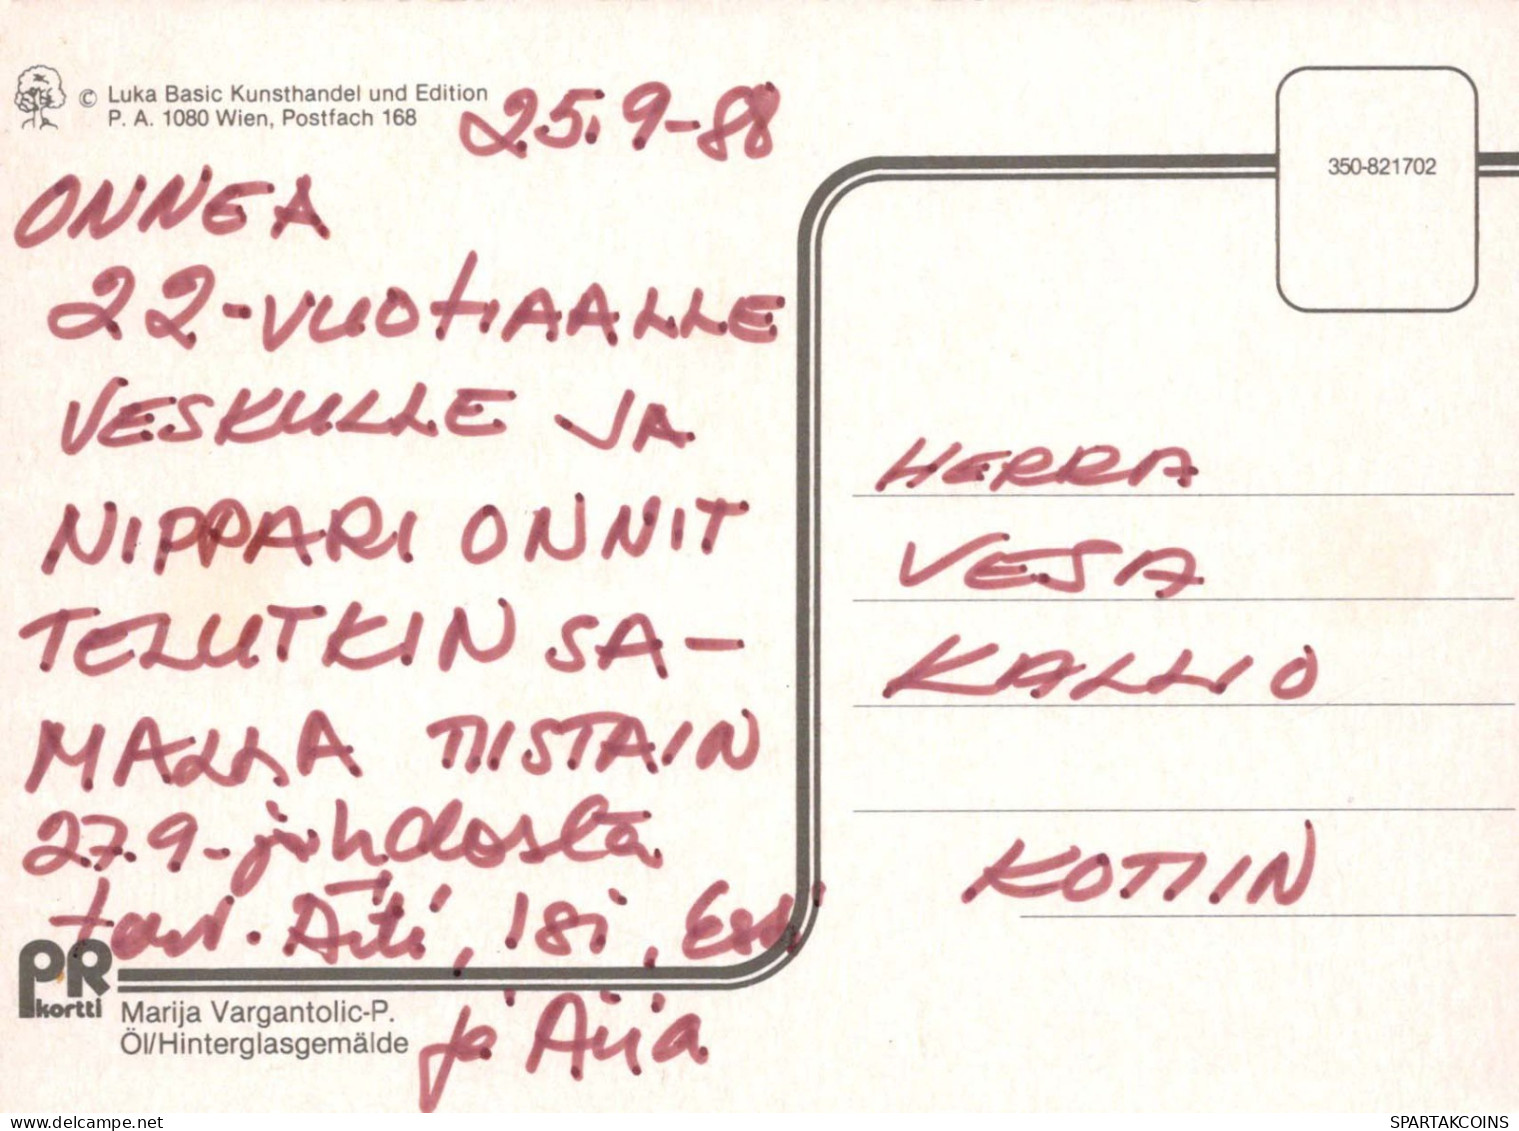 © Luka Basic Kunsthandel und Edition
P. A. 1080 Wien, Postfach 168
25.9-88
ONNEA
22-VUOTIAALLE
VESKULLE JA
NIPPARI ONNIT
TELUTKIN SA-
MALLA TIISTAIN
27.9-juhdosta
toiv. Äiti, Isi, Esa
ja Aija
350-821702
HERRA
VESA
KALLIO
KOTIIN
PR
kortti
Marija Vargantolic-P.
Öl/Hinterglasgemälde
delcampe.net
SPARTAKCOINS